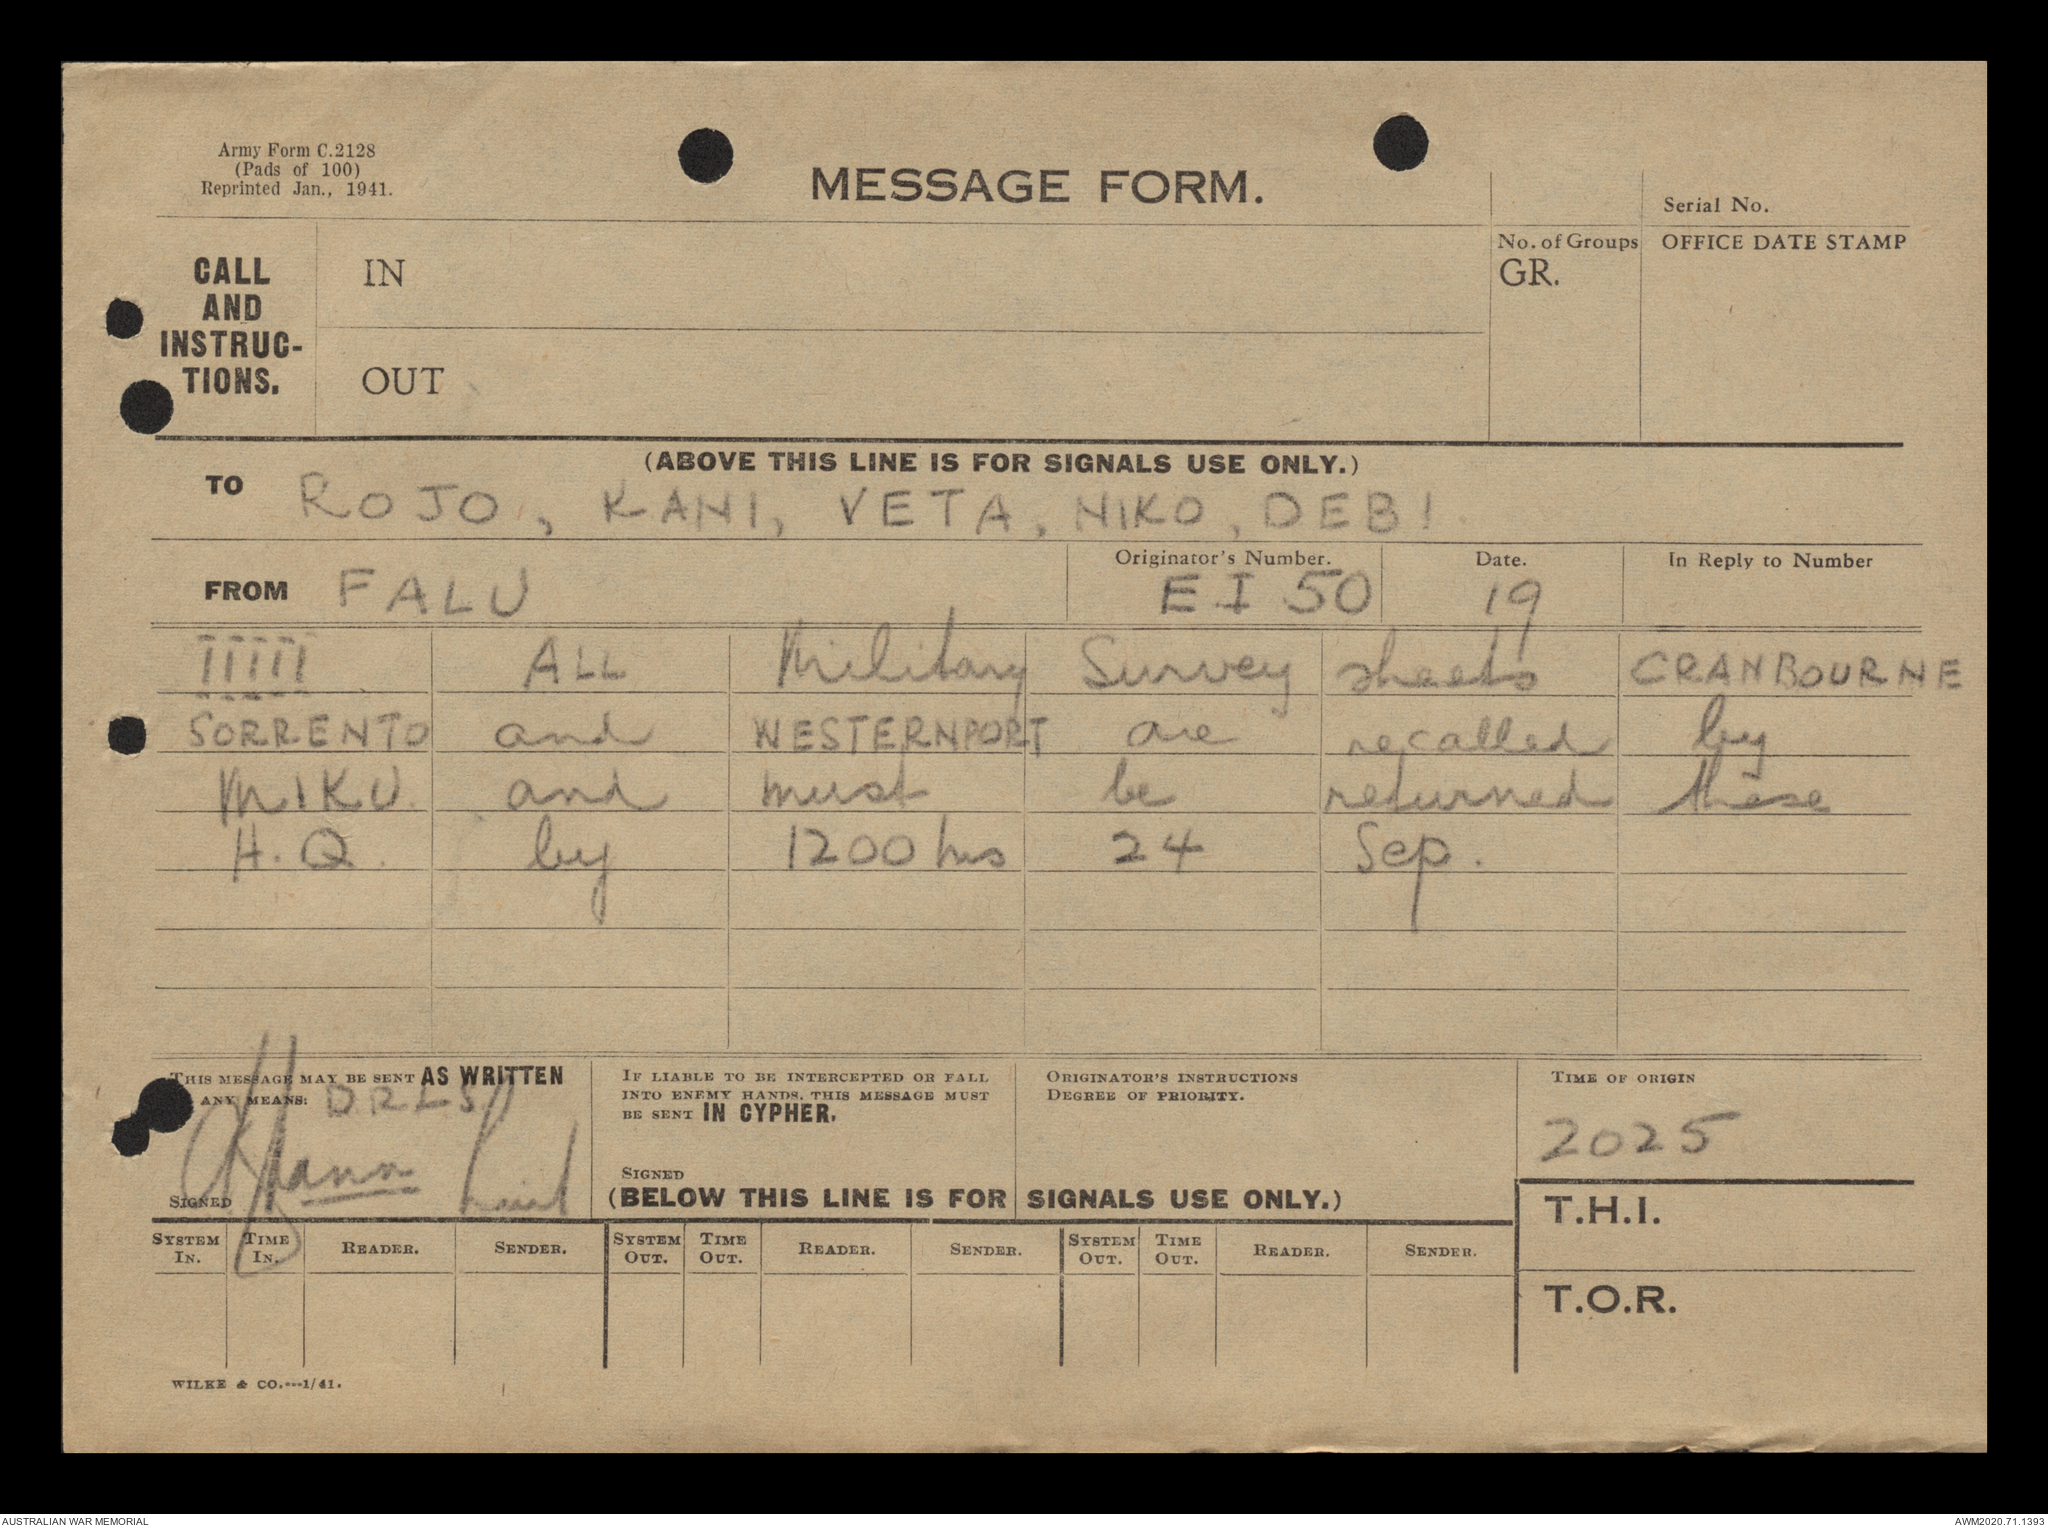 Army Form C.2128
(Pads of 100)
Reprinted Jan., 1941.
MESSAGE FORM.
Serial No.
CALL
AND
INSTRUC-
TIONS.
IN
OUT
No. of Groups
GR.
OFFICE DATE STAMP
(ABOVE THIS LINE IS FOR SIGNALS USE ONLY.)
TO ROJO, KANI, VETA, NIKO, DEBI.
FROM FALU
Originator's Number.
EI 50
Date.
19
In Reply to Number
IIIII ALL Military Survey sheets CRANBOURNE
SORRENTO and WESTERNPORT are recalled by
MIKU. and must be returned these
H.Q. by 1200 hrs 24 Sep.
THIS MESSAGE MAY BE SENT AS WRITTEN
ANY MEANS: DRLS
SIGNED
IF LIABLE TO BE INTERCEPTED OR FALL
INTO ENEMY HANDS, THIS MESSAGE MUST
BE SENT IN CYPHER.
SIGNED
ORIGINATOR'S INSTRUCTIONS
DEGREE OF PRIORITY.
TIME OF ORIGIN
2025
(BELOW THIS LINE IS FOR SIGNALS USE ONLY.)
T.H.I.
T.O.R.
SYSTEM IN. TIME IN. READER. SENDER. SYSTEM OUT. TIME OUT. READER. SENDER. SYSTEM OUT. TIME OUT. READER. SENDER.
WILKE & CO.---1/41.
AUSTRALIAN WAR MEMORIAL
AWM2020.71.1393